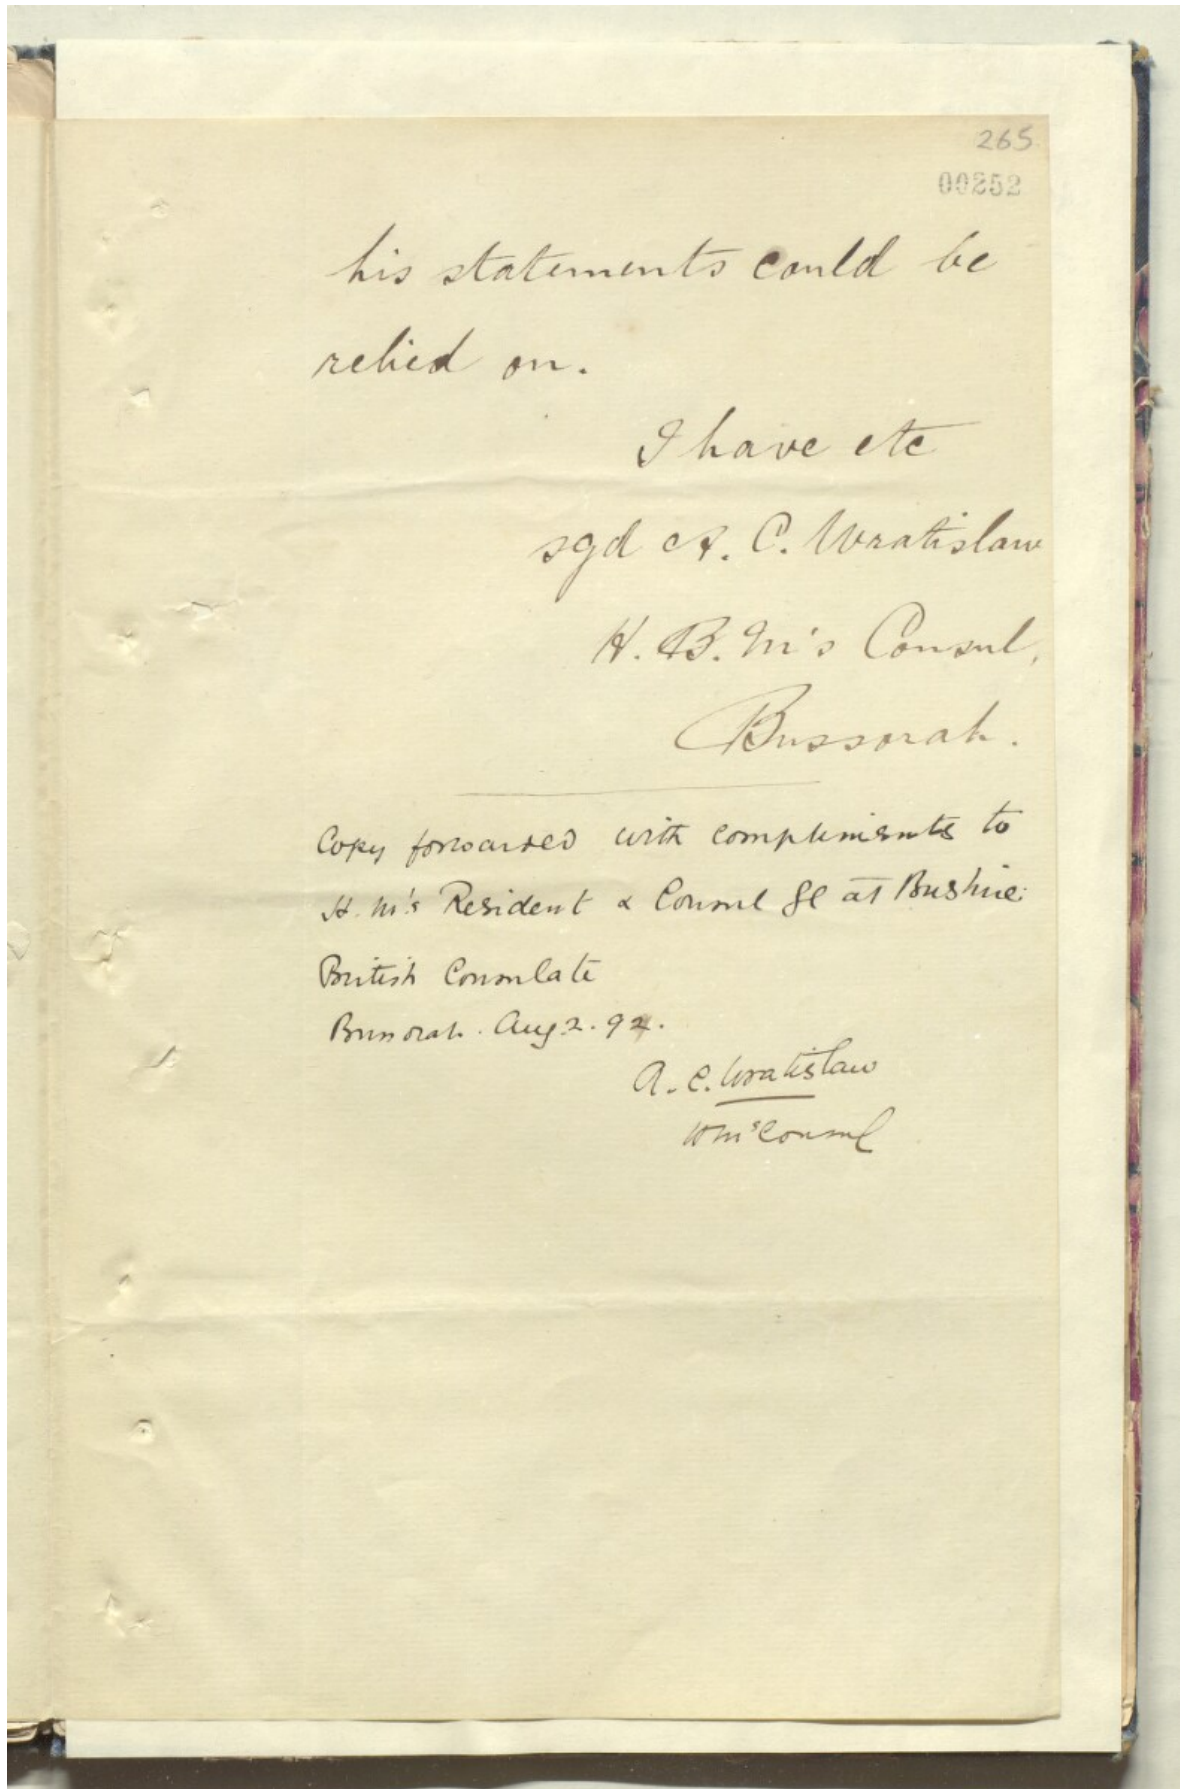 265
00252
his statements could be
relied on.
I have etc
sgd A. C. Wratislaw
H. B. M's Consul,
Bussorah.
Copy forwarded with compliments to
H. M's Resident & Consul Gl at Bushire.
British Consulate
Bussorah. Aug. 2. 92.
A. C. Wratislaw
HMs Consul